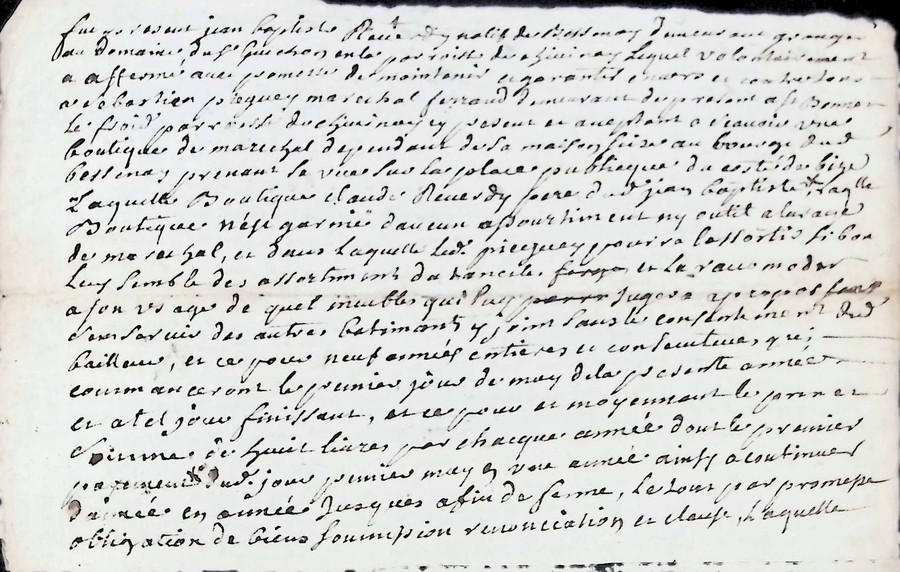 fut present jean baptiste Reverdy natif de Bessenay demeurant granger
au domaine du Sr Guichon en la parroisse de chivinay lequel volontairement
a affermé avec promesse de maintenir et garantir envers et contre tous
a sebastien piequey marechal ferrand demeurant du present a St Bonnet
le froid parroisse de chivinay cy present et aceptant a scavoir une
boutique de marechal dependant de sa maison size au bourg dud
bessenay prenant sa vue sur la place publique du costé de bize
Laquelle Boutique claude Reverdy pere dud jean baptiste laqlle
Boutique n'est garnie d'aucun assortiment ny outil a l'usage
de marechal, et dans laquelle led. piequey pourra l'assortir si bon
luy semble des assortiments d'utancile forge et la racomoder
a son usage de quel meubles qu'il luy jugera a propos
s'en servir des autres batimants y joint sans le consentement dud
bailleur, et ce pour neuf années entieres et consecutives qui
commanceront le premier jour de may de la presente année
et a tel jour finissant, et ce pour et moyennant le prix et
somme de huit livres par chacque année dont le premier
payement dud. jour premier may en une année ainsy a continuer
d'année en année jusques a fin de ferme, le tout par promesse
obligation de biens soumission renonciation et clause, Laquelle